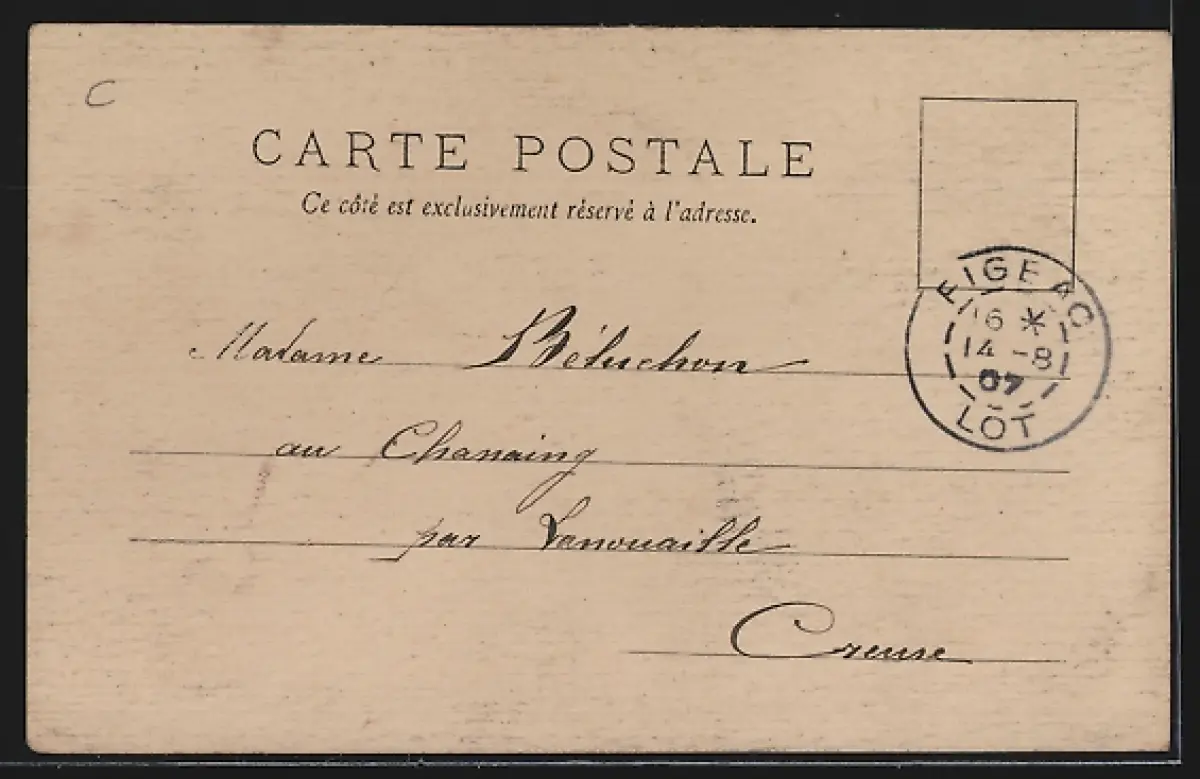 C
CARTE POSTALE
Ce côté est exclusivement réservé à l'adresse.
FIGEAC
16 *
14 -8
07
LOT
Madame Bétuchon
au Chanaing
par Lanouaille
Creuse